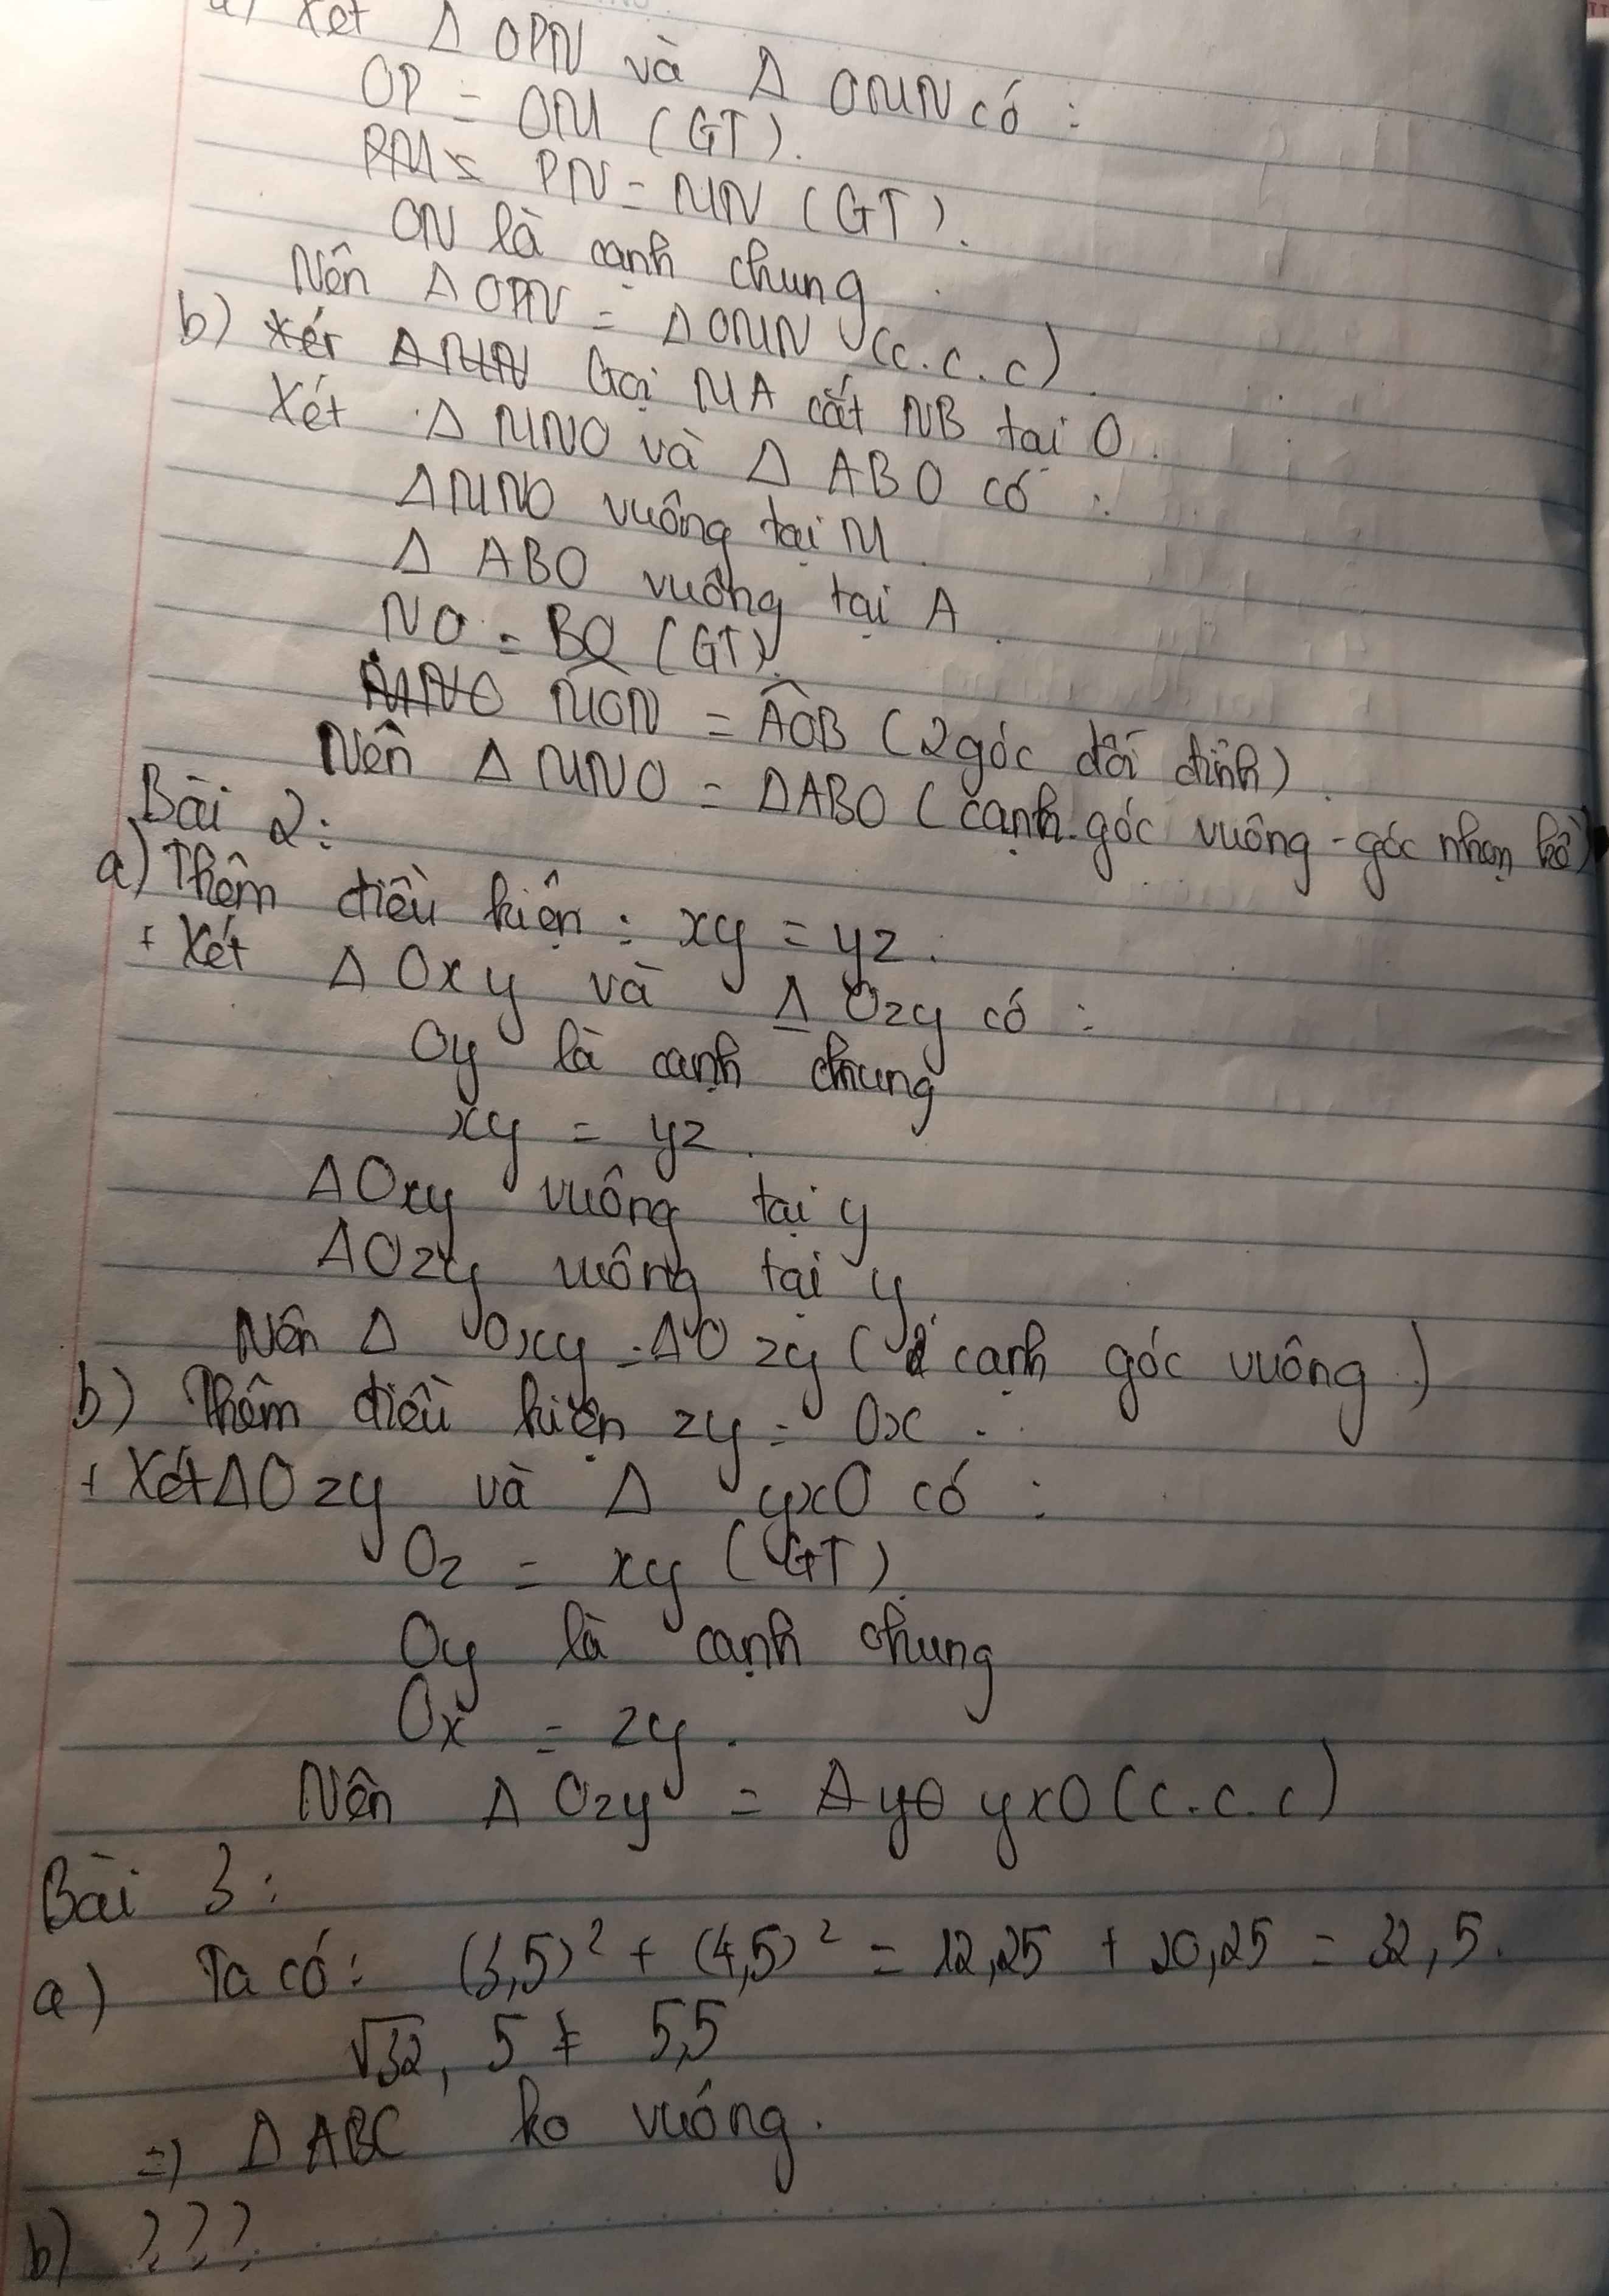 a) Xét Δ OPN và Δ OMN có :
OP = OM (GT).
PM = PN = MN (GT).
ON là cạnh chung.
Nên Δ OPN = Δ OMN (c.c.c).
b) Xét ΔMN Gọi MA cắt NB tại O.
Xét Δ MNO và Δ ABO có :
ΔMNO vuông tại M.
Δ ABO vuông tại A.
NO = BO (GT).
MNO MÔN = AÔB (2 góc đối đỉnh).
Nên Δ MNO = ΔABO (cạnh góc vuông - góc nhọn kề)
Bài 2:
a) Thêm điều kiện : xy = yz.
+ Xét Δ Oxy và Δ Ozy có :
Oy là cạnh chung
xy = yz.
ΔOxy vuông tại y
ΔOzy vuông tại y.
Nên Δ Oxy = ΔO zy (2 cạnh góc vuông)
b) Thêm điều kiện zy = Ox.
+ Xét ΔOzy và Δ yxO có :
Oz = xy (GT).
Oy là cạnh chung
Ox = zy.
Nên Δ Ozy = Δ yO yxO (c.c.c)
Bài 3:
a) Ta có: (3,5)² + (4,5)² = 12,25 + 20,25 = 32,5.
√32,5 ≠ 5,5
=) Δ ABC ko vuông.
b) ???